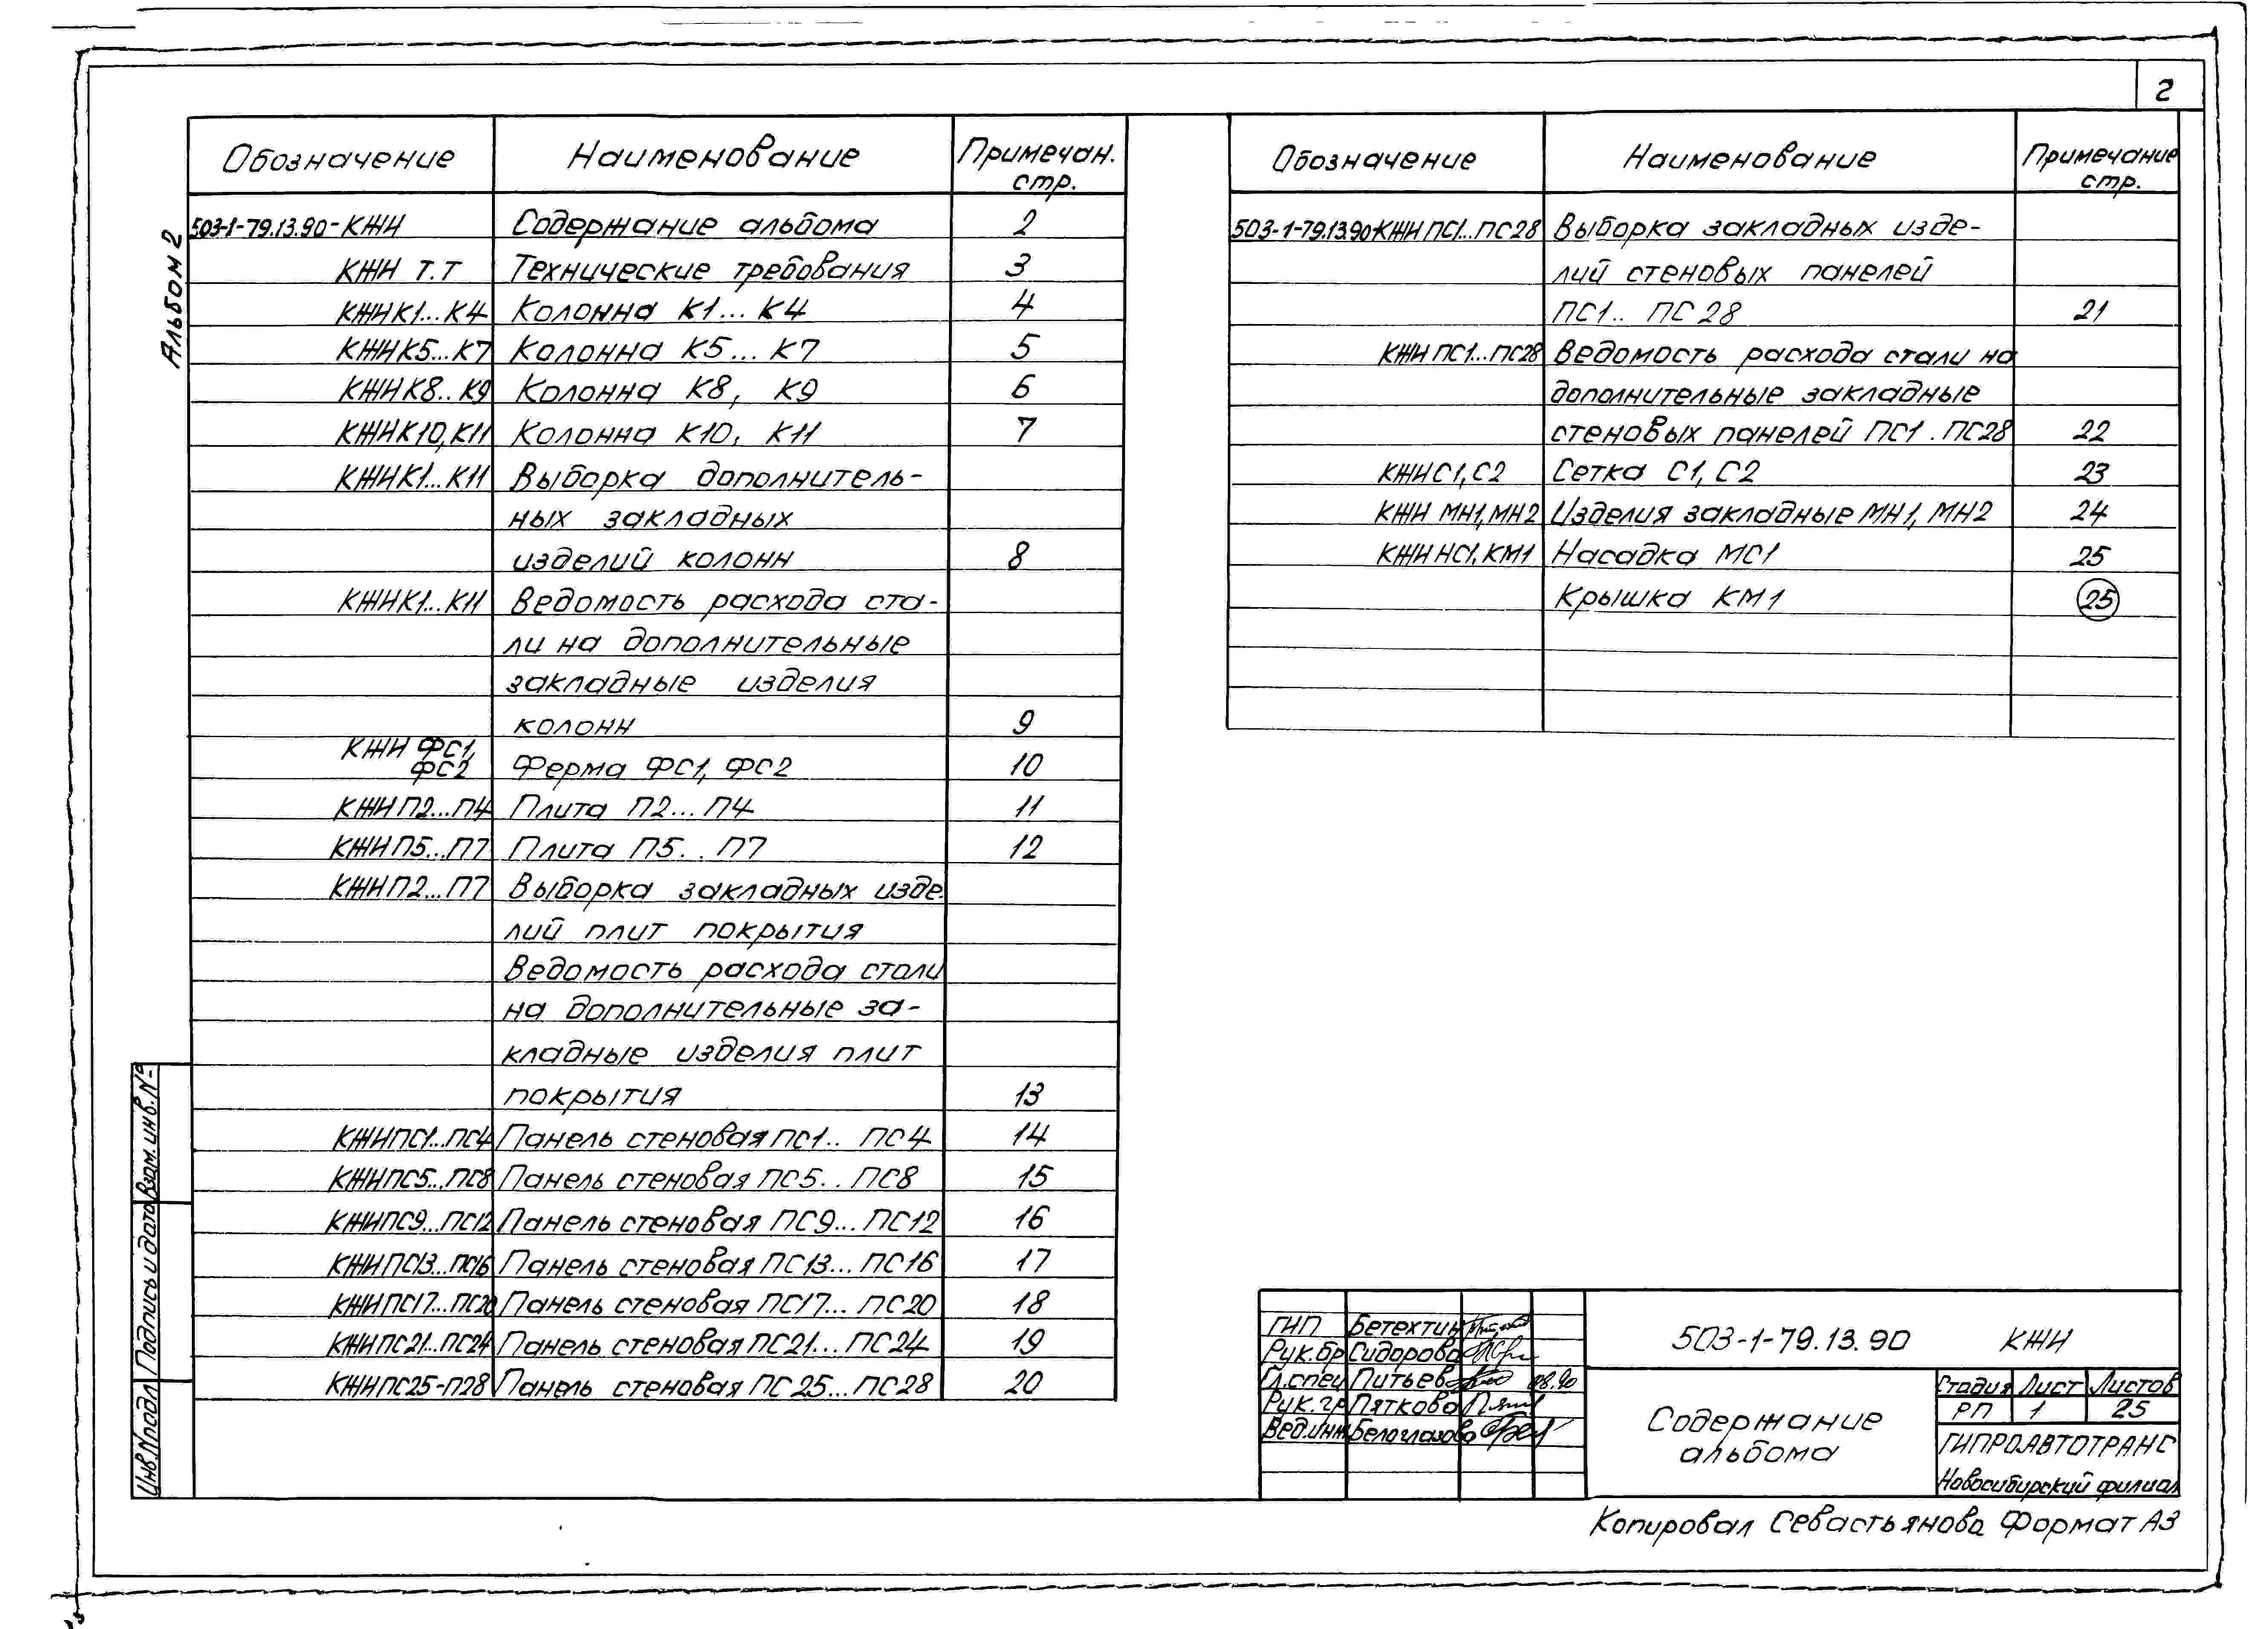 2
Альбом 2
Обозначение Наименование Примечан. стр.
503-1-79.13.90-КЖИ Содержание альбома 2
КЖИ Т.Т Технические требования 3
КЖИ К1...К4 Колонна К1...К4 4
КЖИ К5...К7 Колонна К5...К7 5
КЖИ К8..К9 Колонна К8, К9 6
КЖИ К10, К11 Колонна К10, К11 7
КЖИ К1...К11 Выборка дополнитель-
ных закладных
изделий колонн 8
КЖИ К1...К11 Ведомость расхода ста-
ли на дополнительные
закладные изделия
колонн 9
КЖИ ФС1,
ФС2 Ферма ФС1, ФС2 10
КЖИ П2...П4 Плита П2...П4 11
КЖИ П5...П7 Плита П5..П7 12
КЖИ П2...П7 Выборка закладных изде-
лий плит покрытия
Ведомость расхода стали
на дополнительные за-
кладные изделия плит
покрытия 13
КЖИ ПС1...ПС4 Панель стеновая ПС1.. ПС4 14
КЖИ ПС5...ПС8 Панель стеновая ПС5..ПС8 15
КЖИ ПС9...ПС12 Панель стеновая ПС9...ПС12 16
КЖИ ПС13...ПС16 Панель стеновая ПС13...ПС16 17
КЖИ ПС17...ПС20 Панель стеновая ПС17...ПС20 18
КЖИ ПС21...ПС24 Панель стеновая ПС21...ПС24 19
КЖИ ПС25-П28 Панель стеновая ПС25...ПС28 20
Обозначение Наименование Примечание стр.
503-1-79.13.90-КЖИ ПС1...ПС28 Выборка закладных изде-
лий стеновых панелей
ПС1.. ПС28 21
КЖИ ПС1...ПС28 Ведомость расхода стали на
дополнительные закладные
стеновых панелей ПС1.ПС28 22
КЖИ С1, С2 Сетка С1, С2 23
КЖИ МН1, МН2 Изделия закладные МН1, МН2 24
КЖИ НС1, КМ1 Насадка МС1 25
Крышка КМ1 25
Взам. инв. №
Подпись и дата
Инв. N подл
ГИП Бетехтин
Рук.бр Сидорова
Гл.спец Питьев 08.90
Рук.гр Пяткова
Вед.инж Белоглазова
503-1-79.13.90 КЖИ
Содержание
альбома
Стадия Лист Листов
РП 1 25
ГИПРОАВТОТРАНС
Новосибирский филиал
Копировал Севастьянова Формат А3